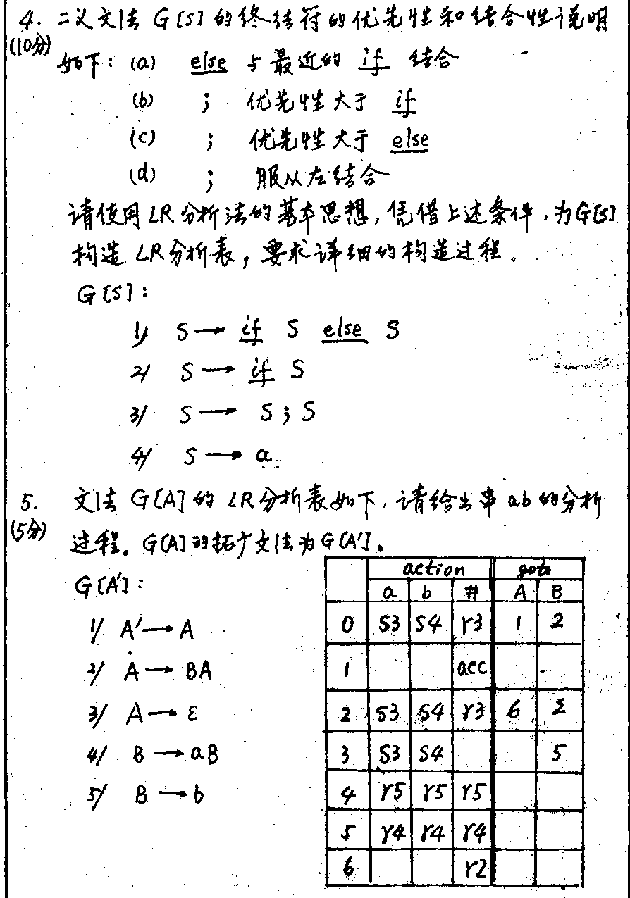 4. 二义文法 G[S] 的终结符的优先性和结合性说明
(10分) 如下: (a) else 与最近的 if 结合
(b) ; 优先性大于 if
(c) ; 优先性大于 else
(d) ; 服从左结合
请使用LR分析法的基本思想, 凭借上述条件, 为G[S]
构造LR分析表, 要求详细的构造过程。
G[S]:
1) S → if S else S
2) S → if S
3) S → S ; S
4) S → a
5. 文法 G[A] 的 LR分析表如下, 请给出串 ab 的分析
(5分) 过程。G[A]的拓广文法为G[A']。
G[A']:
1) A' → A
2) A → BA
3) A → ε
4) B → aB
5) B → b
action goto
a b # A B
0 S3 S4 r3 1 2
1 acc
2 S3 S4 r3 6 2
3 S3 S4 5
4 r5 r5 r5
5 r4 r4 r4
6 r2